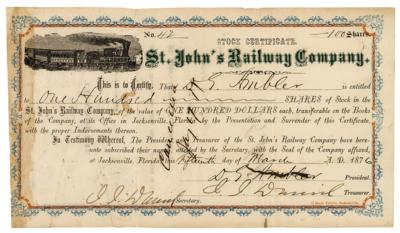 No. 42 STOCK CERTIFICATE. 100 Shares
St. John's Railway Company.
This is to Certify, That D. G. Ambler is entitled
to One Hundred SHARES of Stock in
St. John's Railway Company, of the value of ONE HUNDRED DOLLARS each, transferable on the Books
of the Company, at its Office in Jacksonville, Florida, by the Presentation and Surrender of this Certificate
with the proper Indorsements thereon.
In Testimony Whereof, The President and Treasurer of the St. John's Railway Company have hereunto
subscribed their names, attested by the Secretary, with the Seal of the Company affixed,
at Jacksonville, Florida, Fifteenth day of March A. D. 1876
D. G. Ambler President.
J. J. Daniel Secretary.
J. J. Daniel Treasurer.